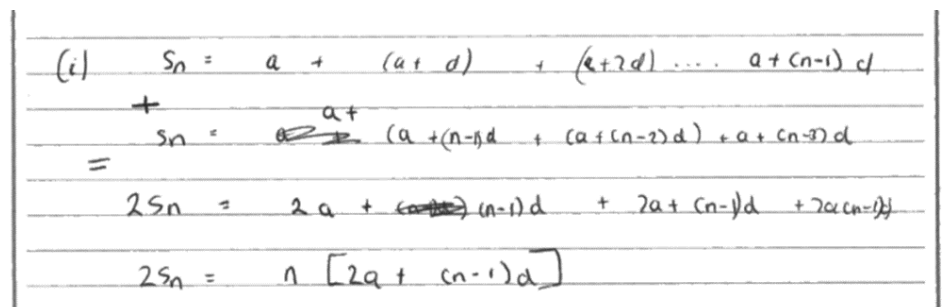 (i) Sn = a + (a + d) + (a + 2d) .... a + (n-1) d
+
a +
Sn = (a + (n-1)d + (a + (n-2)d) + a + (n-3)d
=
2Sn = 2a + (n-1)d + 2a + (n-1)d + 2a(n-1)d
2Sn = n [2a + (n-1)d]